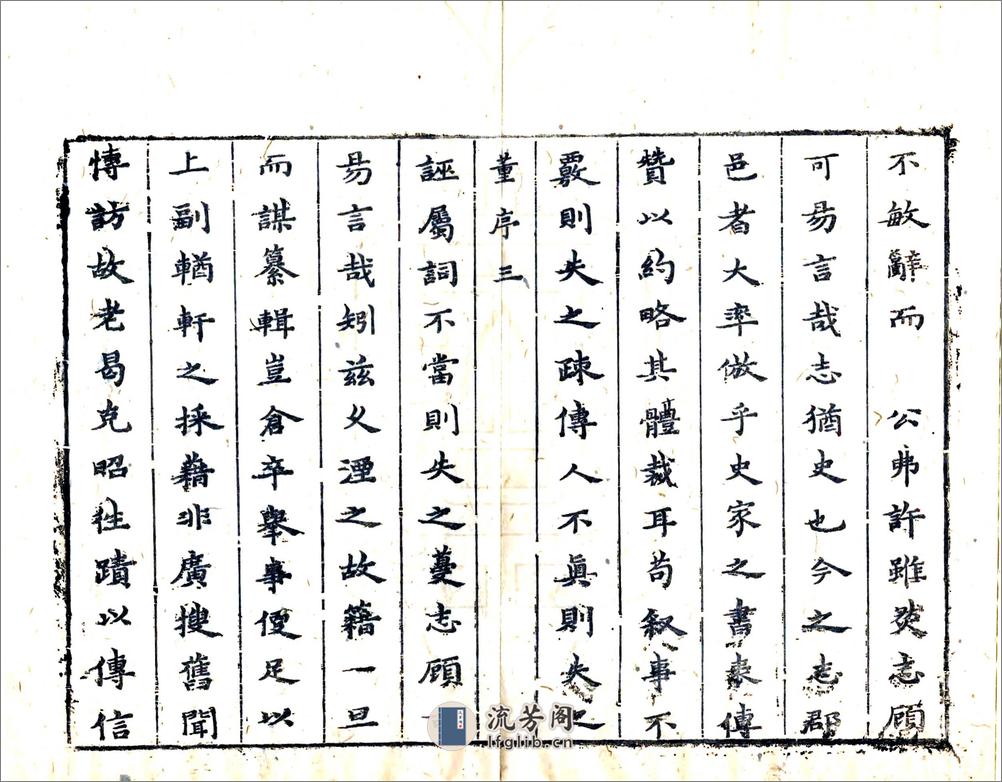 不敏辭而　公弗許雖然志顧
可易言哉志猶史也今之志郡
邑者大率倣乎史家之書表傳
贊以約略其體裁耳苟敘事不
覈則失之疎傳人不眞則失之
董序 三
誣屬詞不當則失之蔓志顧
易言哉矧兹乂湮之故籍一旦
而謀纂輯豈倉卒舉事便足以
上副輶軒之採藉非廣搜舊聞
愽訪故老曷克昭徃蹟以傳信
流芳阁
lfglib.cn